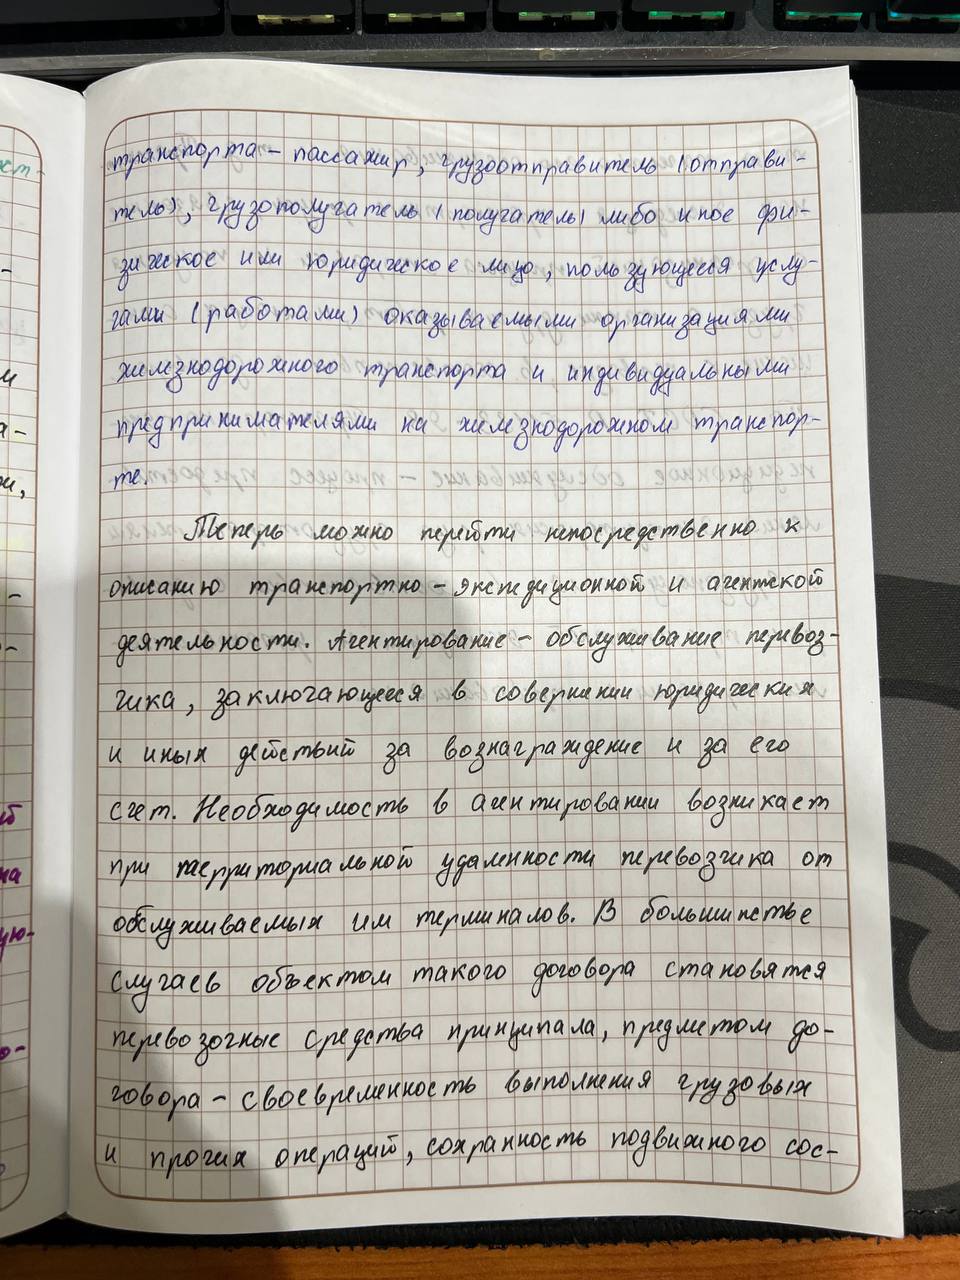 транспорта – пассажир, грузоотправитель (отправи-
тель), грузополучатель (получатель) либо иное фи-
зическое или юридическое лицо, пользующееся услу-
гами (работами) оказываемыми организациями
железнодорожного транспорта и индивидуальными
предпринимателями на железнодорожном транспор-
те.
Теперь можно перейти непосредственно к
описанию транспортно – экспедиционной и агентской
деятельности. Агентирование – обслуживание перевоз-
чика, заключающееся в совершении юридических
и иных действий за вознаграждение и за его
счет. Необходимость в агентировании возникает
при территориальной удаленности перевозчика от
обслуживаемых им терминалов. В большинстве
случаев объектом такого договора становятся
перевозочные средства принципала, предметом до-
говора – своевременность выполнения грузовых
и прочих операций, сохранность подвижного сос-